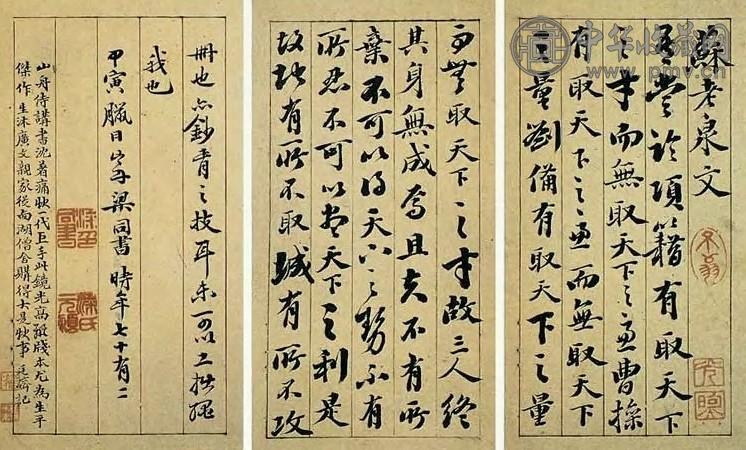 中华收藏网
蘇老泉文
吾嘗論項籍有取天下
之才而無取天下之慮曹操
有取天下之慮而無取天下
之量劉備有取天下之量
而無取天下之才故三人終
其身無成焉且夫不有所
棄不可以得天下之勢不有
所忍不可以盡天下之利是
故地有所不取城有所不攻
冊也亦鈔胥之技耳未可以工拙繩
我也
甲寅臘日山舟梁同書時年七十有二
山舟侍講書沈著痛快一代巨手此鏡光高麗牋本尤為生平
傑作生沐廣文親家從南湖僧舍鼎得大是快事廷濟記